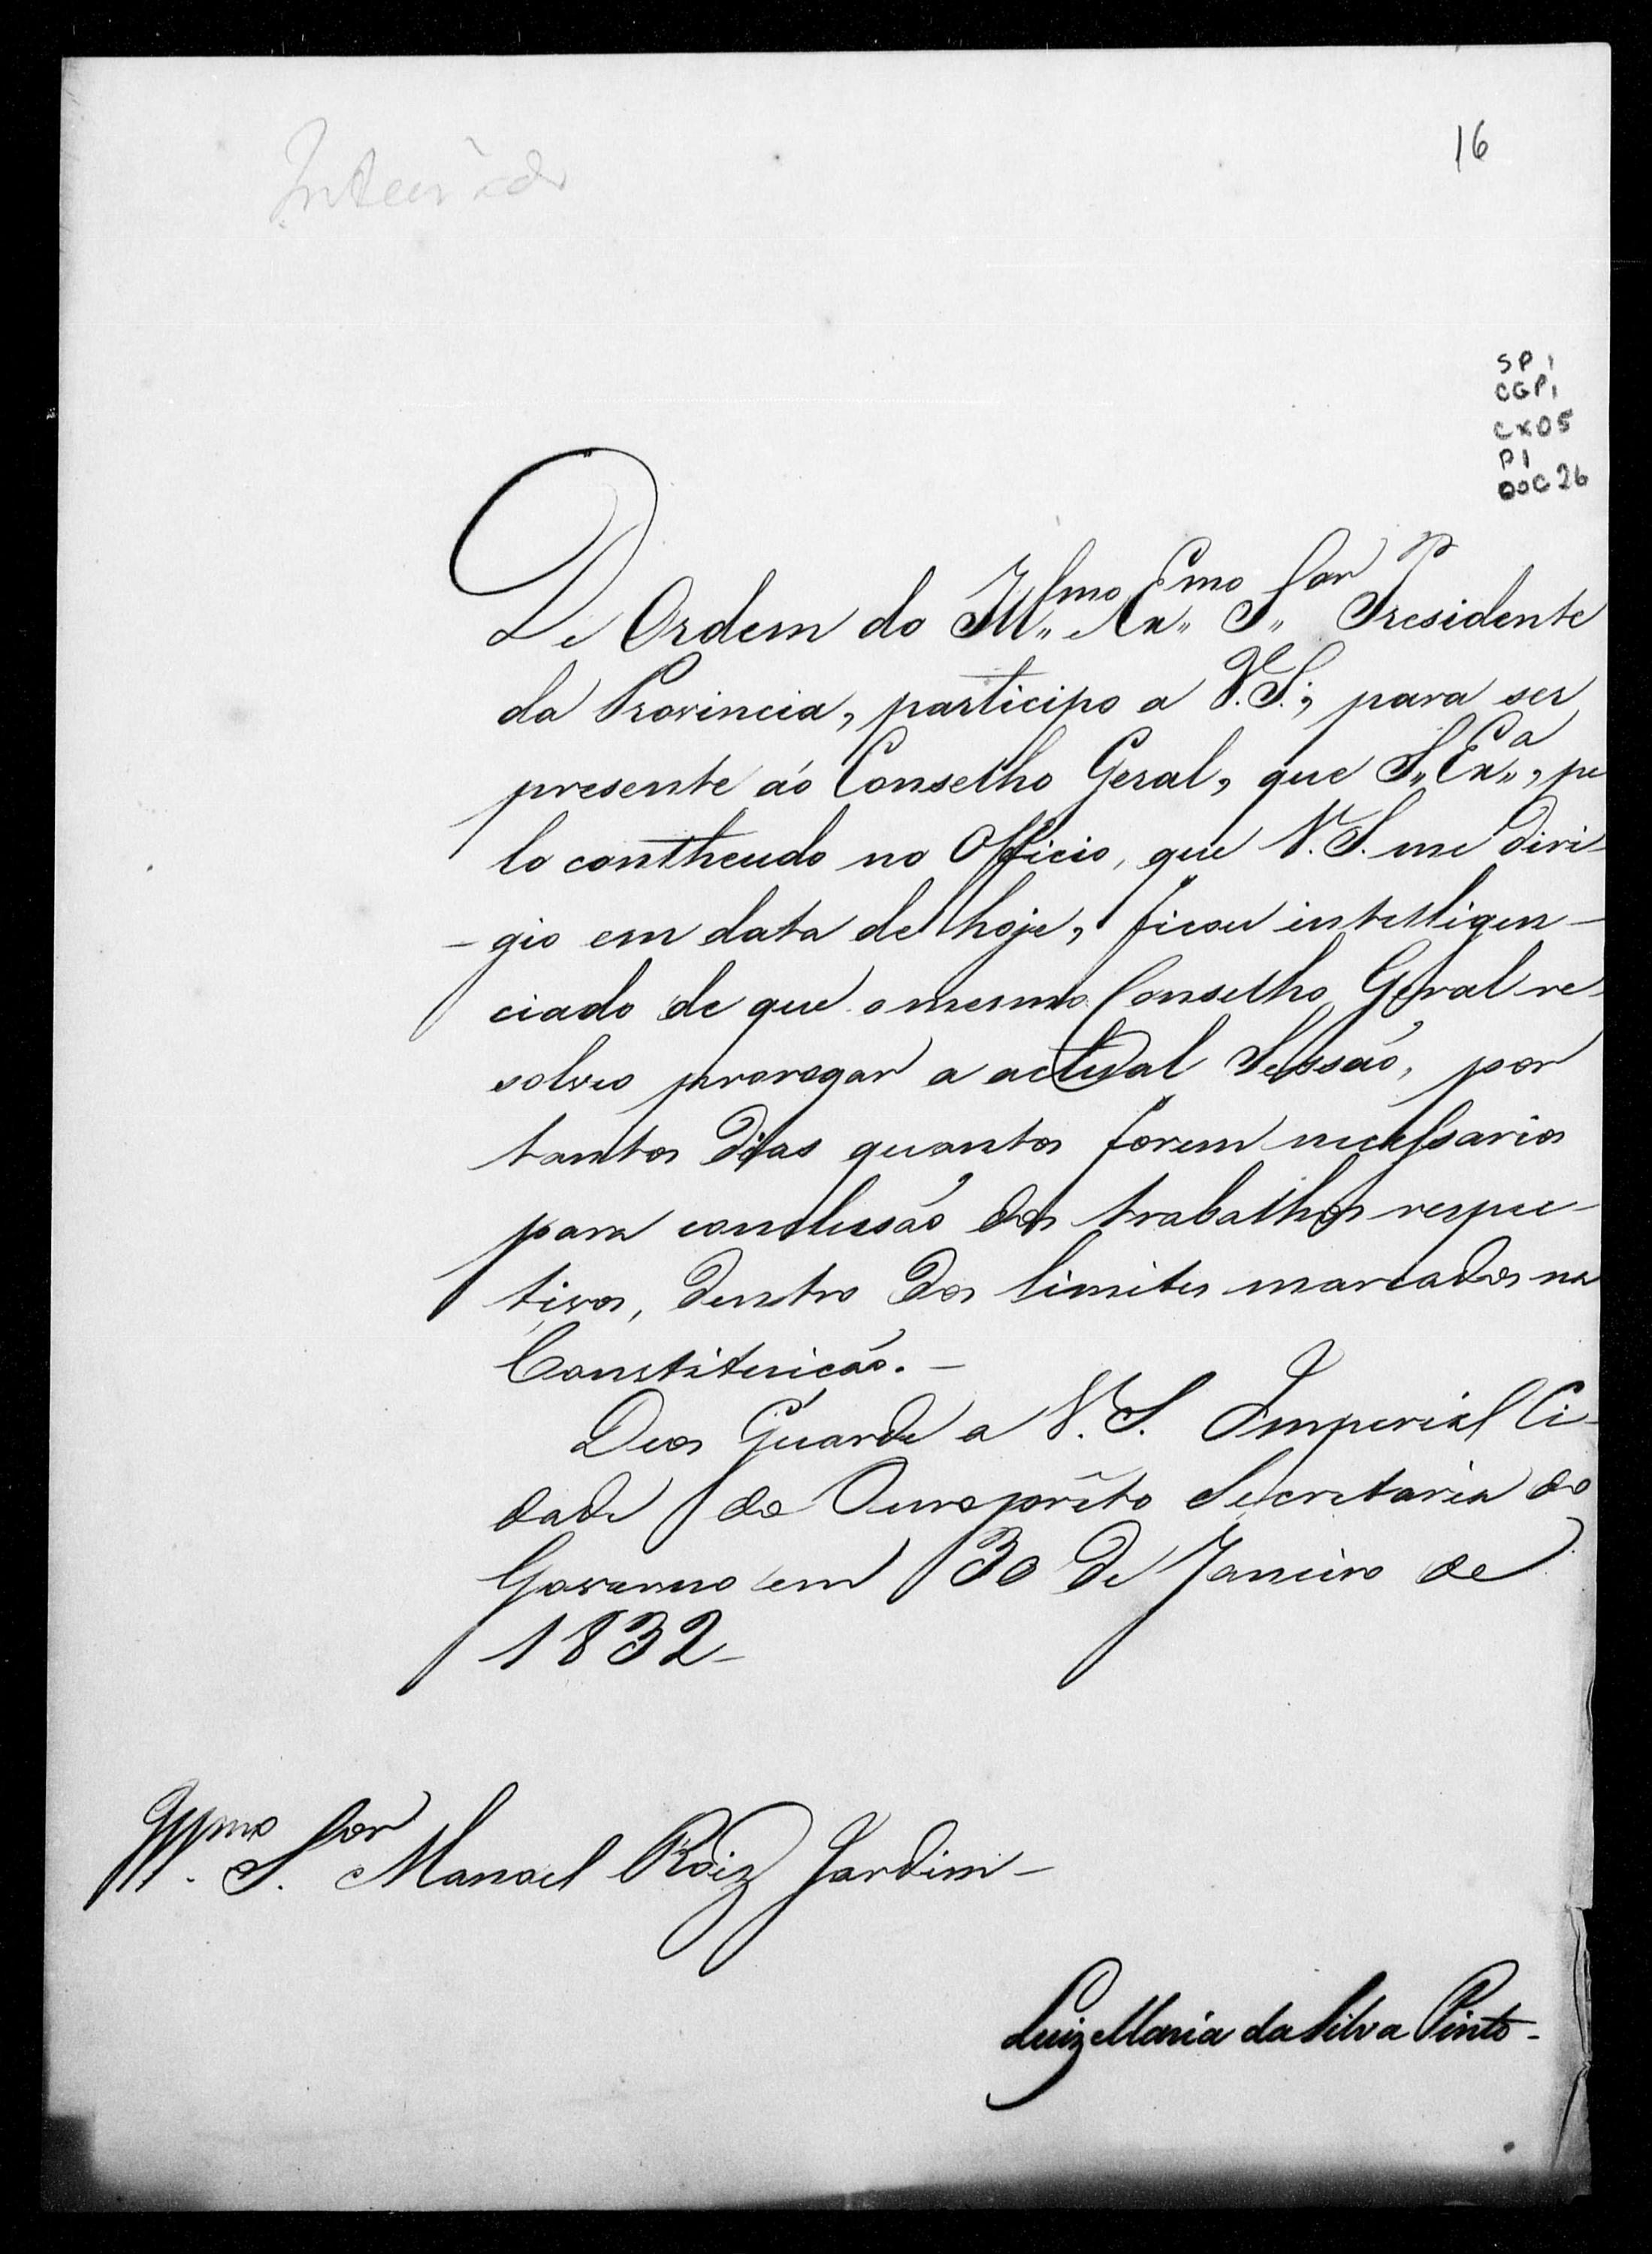 16
Inteirado
SP 1
CGP1
CX05
P1
DOC 26
De Ordem do Ill.mo Ex.mo S.or Presidente
da Provincia, participo a V.S.; para ser
presente aó Conselho Geral, que S. Ex.a, pe
lo contheudo no Officio, que V.S. me diri-
-gio em data de hoje, ficou intelligen-
ciado de que o mesmo Conselho Geral re-
solveo prorogar a actual Sessão, por
tantos dias quantos forem necessarios
para conclusão dos trabalhos respec-
tivos, dentro dos limites marcados na
Constituicão.-
Deos Guarde a V.S. Imperial Ci-
dade do Ouro prêto Secretaria do
Governo em 30 de Janeiro de
1832-
Ill.mo S.or Manoel Roiz Jardim-
Luiz Maria da Silva Pinto-